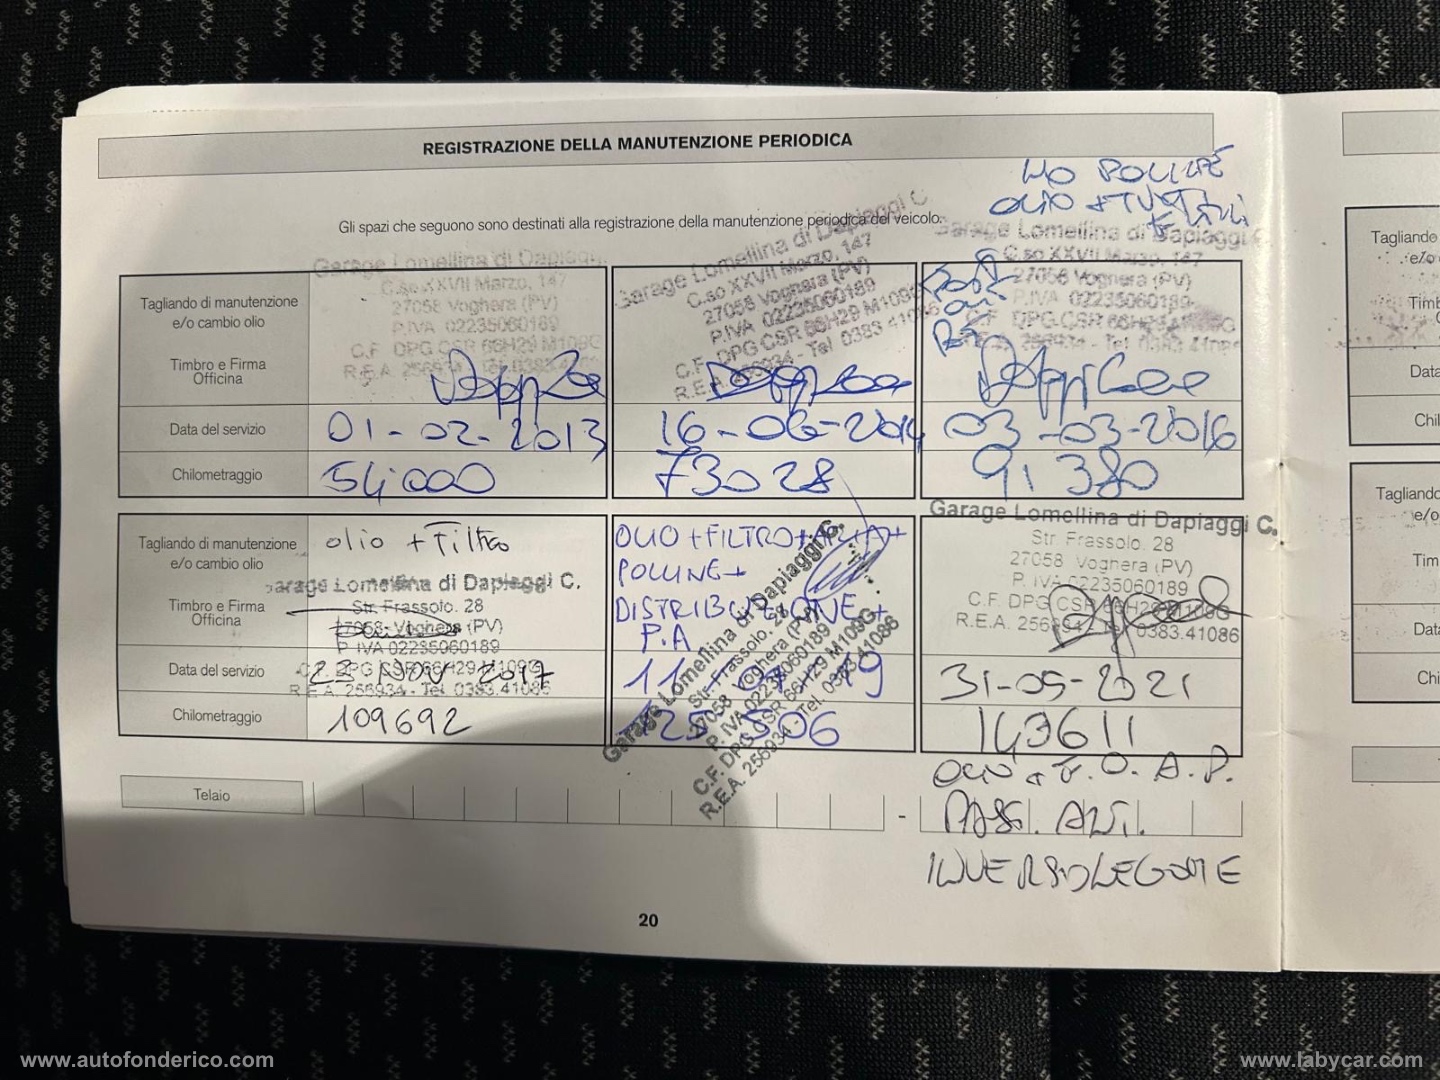 REGISTRAZIONE DELLA MANUTENZIONE PERIODICA
OLIO +
Gli spazi che seguono sono destinati alla registrazione della manutenzione periodica del veicolo.
Tagliando di manutenzione
e/o cambio olio
Timbro e Firma
Officina
Garage Lomellina di Dapiaggi
C.so XXVII Marzo, 147
27058 Voghera (PV)
P.IVA 02235060189
C.F. DPG CSR 66H29 M109G
R.E.A. 256934 - Tel 0383
Garage Lomellina di Dapiaggi C.
C.so XXVII Marzo, 147
27058 Voghera (PV)
P.IVA 02235060189
C.F. DPG CSR 66H29 M109G
R.E.A. 256934 - Tel 0383 41086
Garage Lomellina di Dapiaggi C.
C.so XXVII Marzo, 147
27058 Voghera (PV)
P.IVA 02235060189
C.F. DPG CSR 66H29 M109G
R.E.A. 256934 - Tel 0383 41086
Data del servizio
01-02-2013
16-06-2014
03-03-2016
Chilometraggio
54.000
73028
91.380
Tagliando di manutenzione
e/o cambio olio
Timbro e Firma
Officina
olio + Filtro
Garage Lomellina di Dapiaggi C.
Str. Frassolo. 28
27058 Voghera (PV)
P. IVA 02235060189
C.F. DPG CSR 66H29 M109G
R.E.A. 256934 - Tel. 0383.41086
OLIO + FILTRO + ARIA +
POLLINE +
DISTRIBUZIONE +
P.A
Garage Lomellina di Dapiaggi C.
Str. Frassolo. 28
27058 Voghera (PV)
P. IVA 02235060189
C.F. DPG CSR 66H29 M109G
R.E.A. 256934 - Tel. 0383.41086
Garage Lomellina di Dapiaggi C.
Str. Frassolo. 28
27058 Voghera (PV)
P. IVA 02235060189
C.F. DPG CSR 66H29 M109G
R.E.A. 256934 Tel. 0383.41086
Data del servizio
22 NOV 2017
11 19
31-05-2021
Chilometraggio
109692
125506
143611
OLIO + F. O. A. P.
Telaio
-
PASSI. ANT.
20
Tagliando
e/o
Timb
Data
Chil
Tagliando
e/o
Tim
Dat
Chi
www.autofonderico.com
www.labycar.com